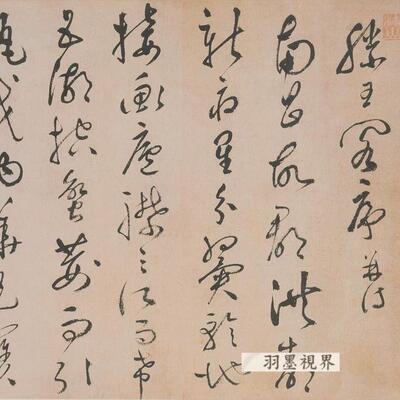 滕王閣序 并詩
南昌故郡洪都
新府星分翼軫地
接衡廬襟三江而帶
五湖控蠻荊而引
甌越物華天寶
羽墨視界